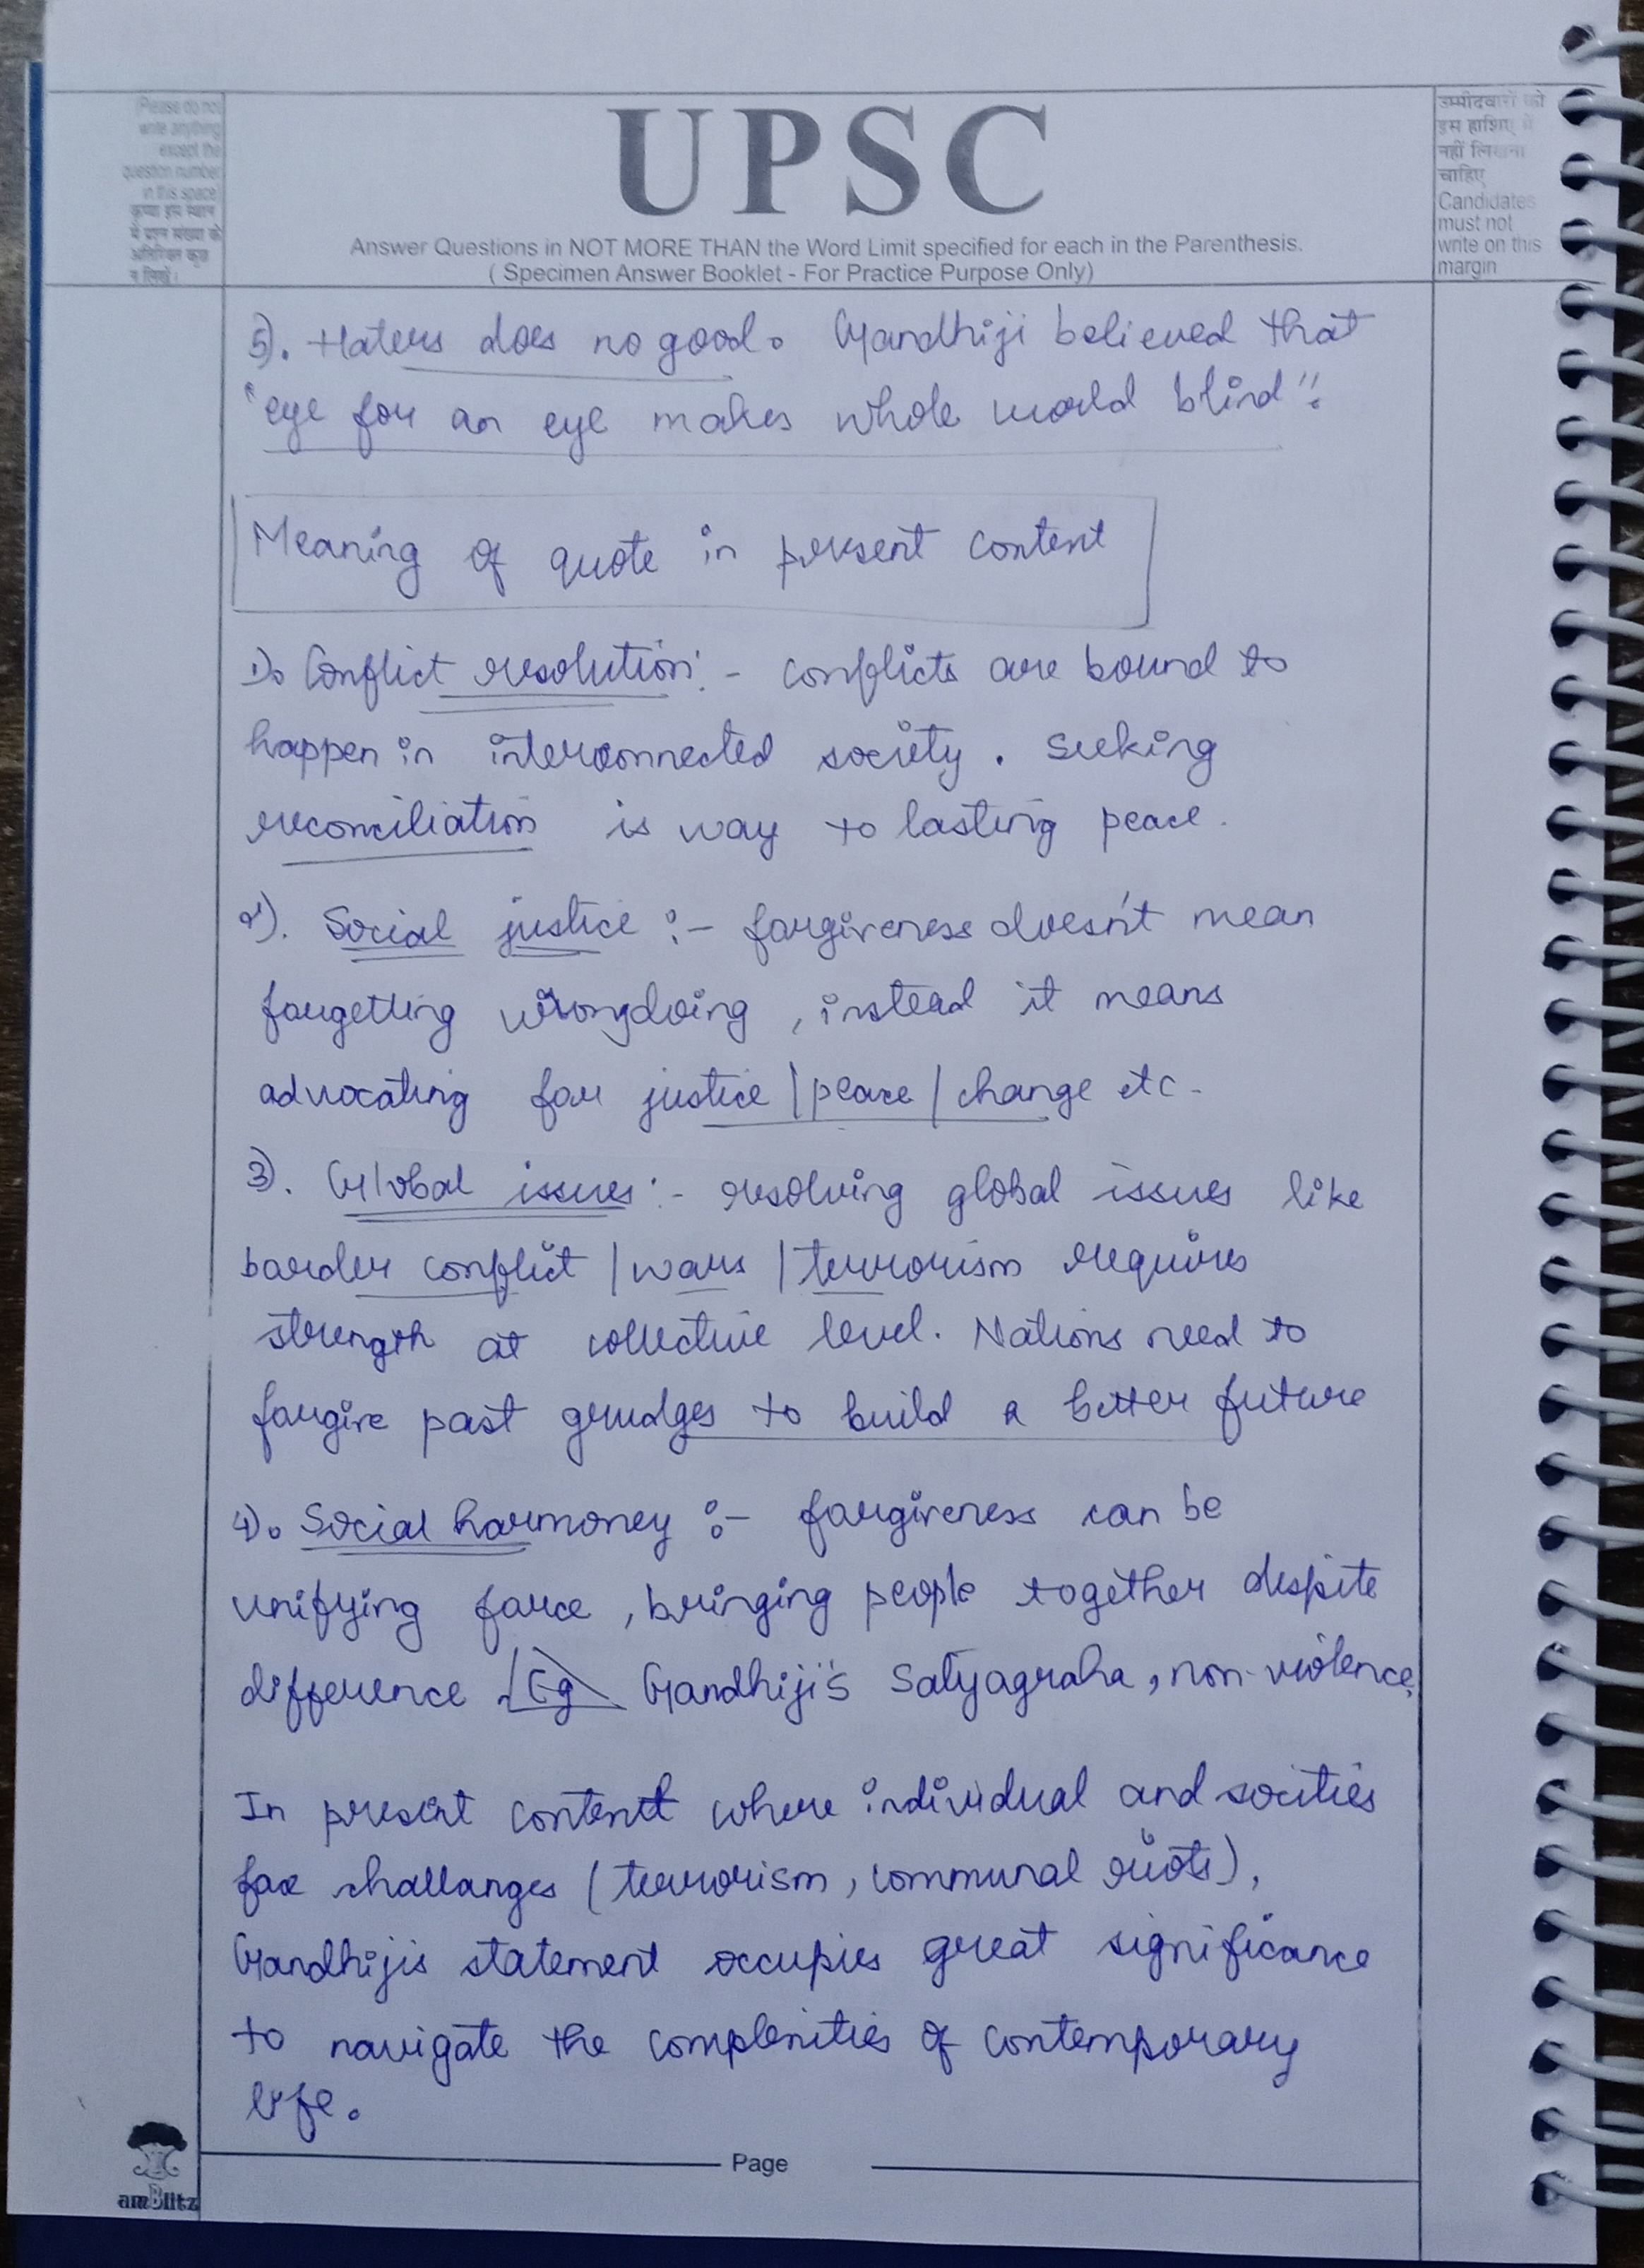 (Please do not
write anything
except the
question number
in this space
कृप्या इस स्थान
में प्रश्न संख्या के
अतिरिक्त कुछ
न लिखें।
UPSC
Answer Questions in NOT MORE THAN the Word Limit specified for each in the Parenthesis.
( Specimen Answer Booklet - For Practice Purpose Only)
उम्मीदवारों को
इस हाशिए में
नहीं लिखना
चाहिए
Candidates
must not
write on this
margin
5). Haters does no good. Gandhiji believed that
"eye for an eye makes whole world blind".
Meaning of quote in present content
1). Conflict resolution:- conflicts are bound to
happen in interconnected society. Seeking
reconciliation is way to lasting peace.
2). Social justice :- forgiveness doesn't mean
forgetting wrongdoing, instead it means
advocating for justice | peace | change etc.
3). Global issues:- resolving global issues like
border conflict | wars | terrorism requires
strength at collective level. Nations need to
forgive past grudges to build a better future
4). Social harmoney :- forgiveness can be
unifying force, bringing people together despite
difference Eg Gandhiji's Satyagraha, non-violence.
In present content where individual and socities
face challanges (terrorism, communal riots),
Gandhijis statement occupies great significance
to navigate the complexities of contemporary
life.
Page
amBlitz